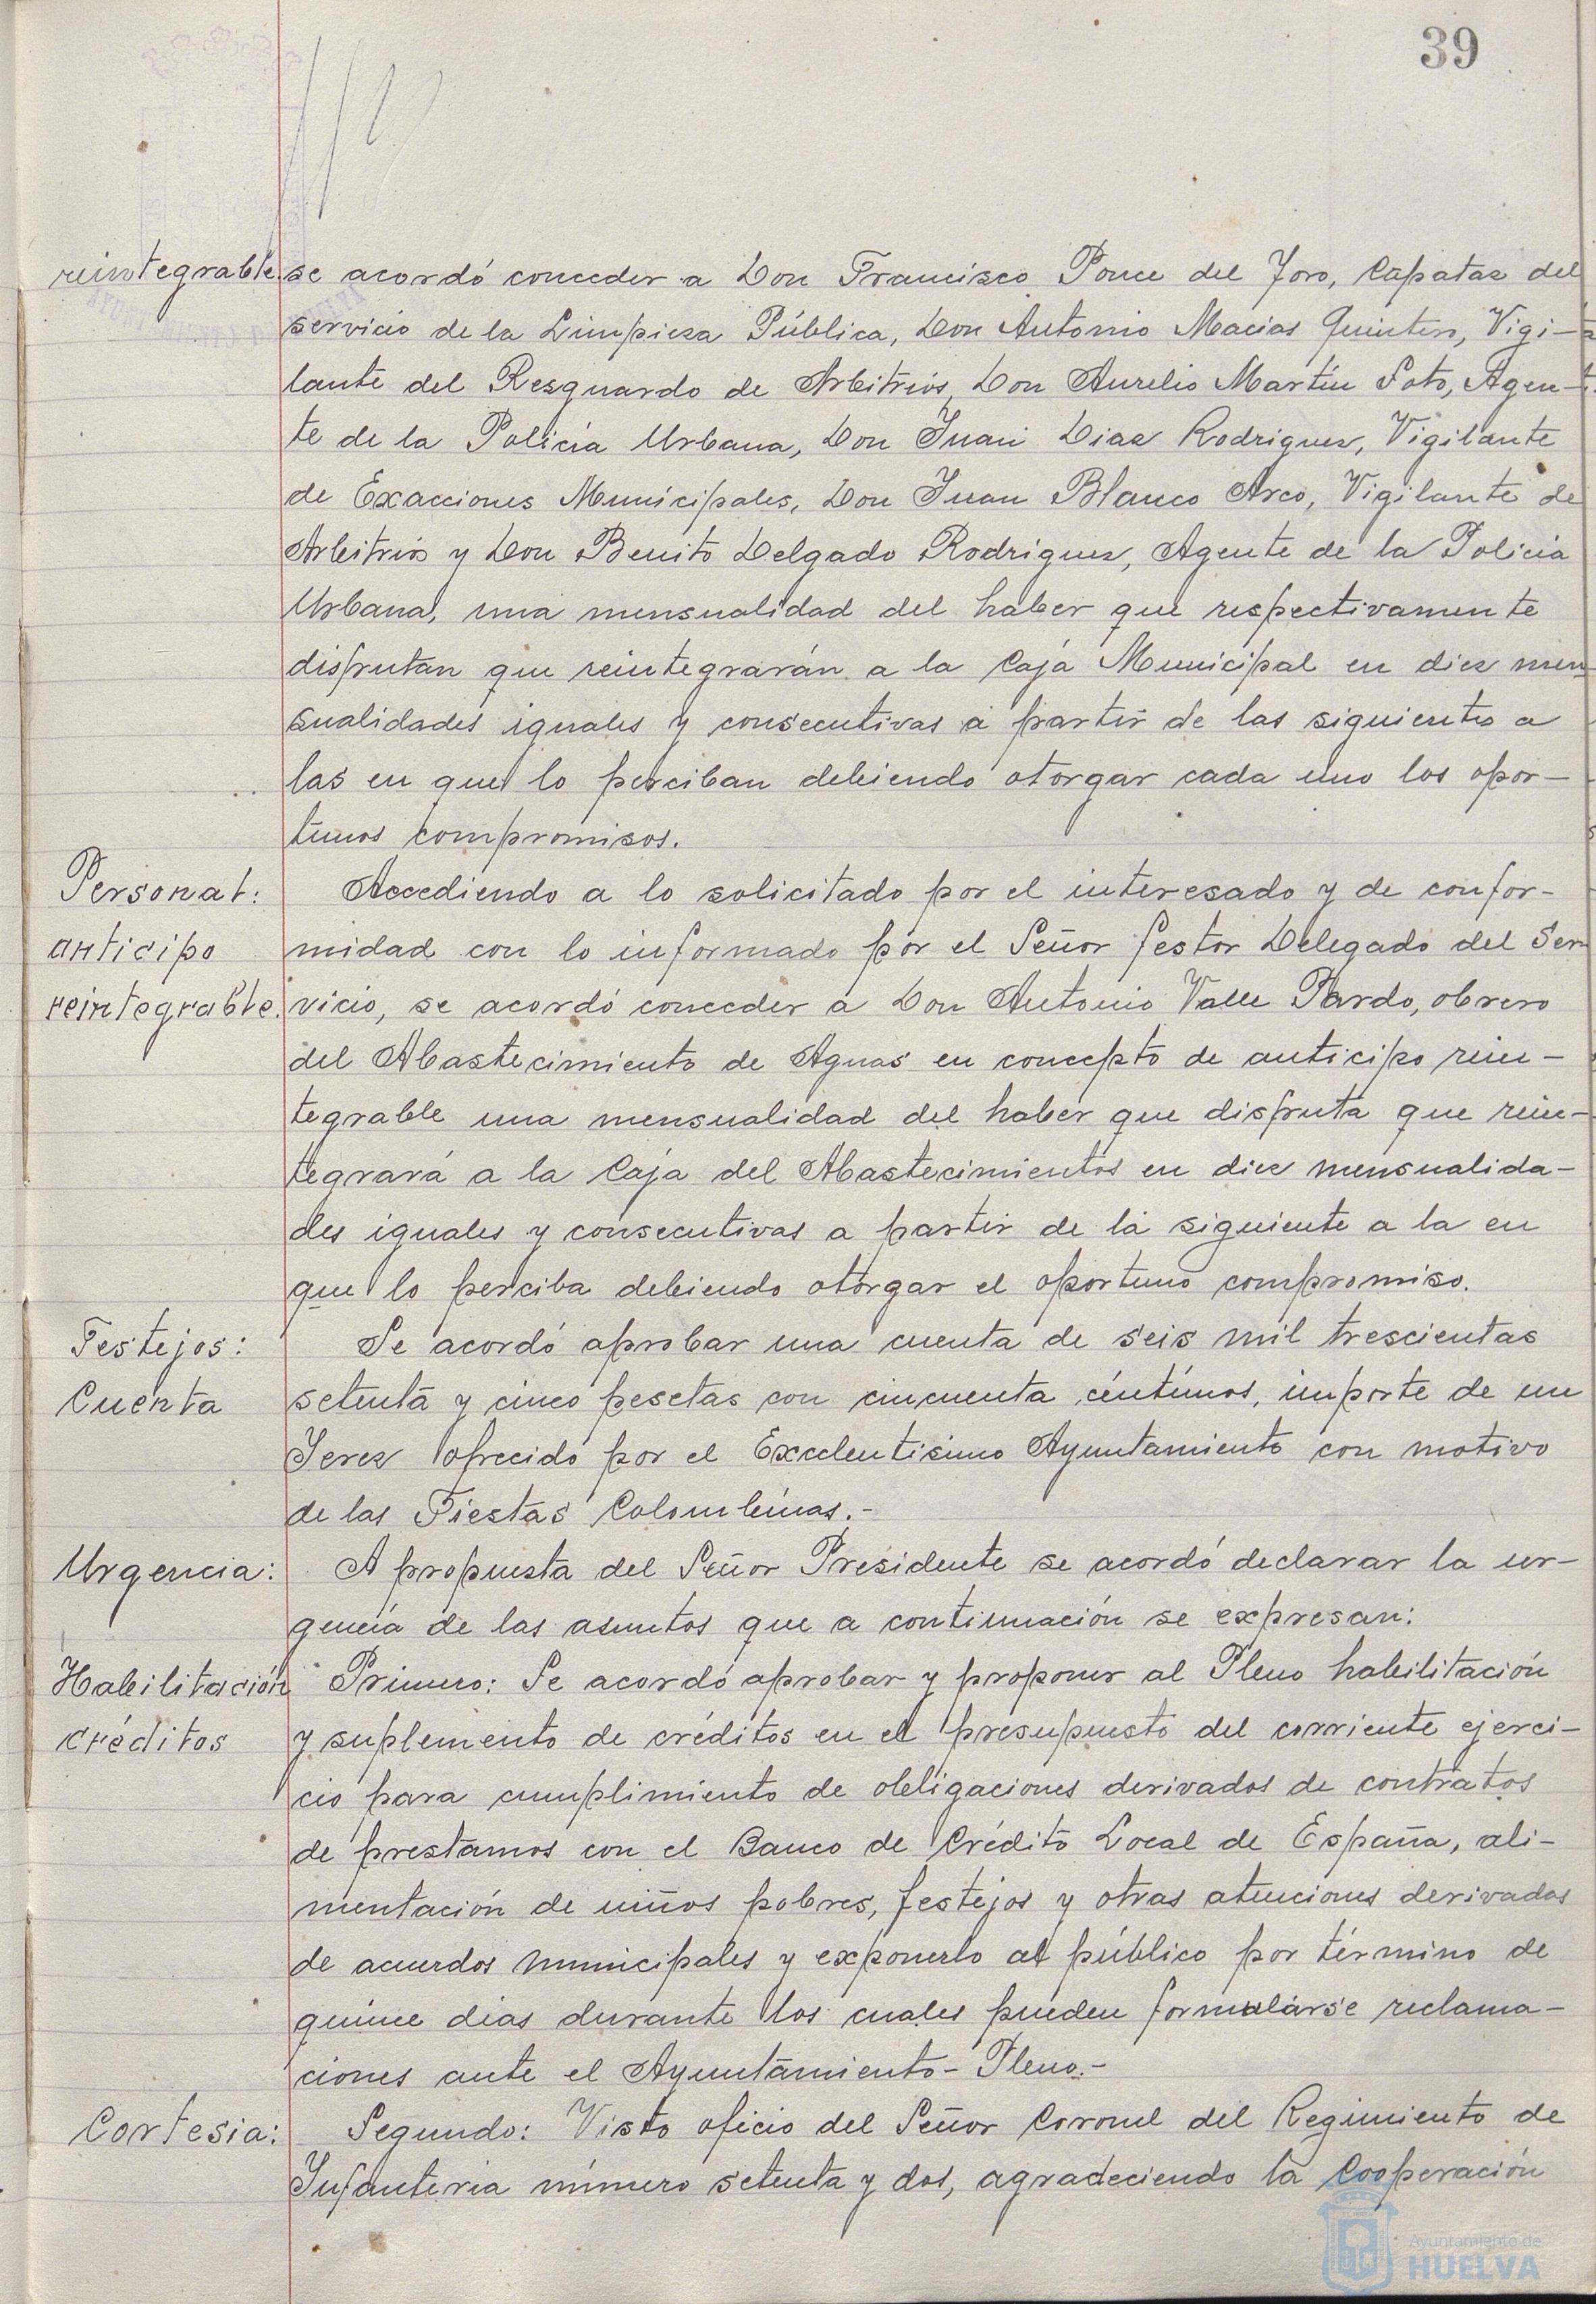 39
reintegrable. se acordó conceder a Don Francisco Ponce del Toro, Capataz del
servicio de la Limpieza Pública, Don Antonio Macias Quintero, Vigi-
lante del Resguardo de Arbitrios, Don Aurelio Martín Soto, Agen-
te de la Policía Urbana, Don Juan Diaz Rodriguez, Vigilante
de Exacciones Municipales, Don Juan Blanco Arco, Vigilante de
Arbitrios y Don Benito Delgado Rodriguez, Agente de la Policía
Urbana, una mensualidad del haber que respectivamente
disfrutan que reintegrarán a la Caja Municipal en diez men-
sualidades iguales y consecutivas a partir de las siguientes a
las en que lo perciban debiendo otorgar cada uno los opor-
tunos compromisos.
Personal: Accediendo a lo solicitado por el interesado y de confor-
anticipo midad con lo informado por el Señor Gestor Delegado del Ser-
reintegrable. vicio, se acordó conceder a Don Antonio Valle Pardo, obrero
del Abastecimiento de Aguas en concepto de anticipo rein-
tegrable una mensualidad del haber que disfruta que rein-
tegrará a la Caja del Abastecimientos en diez mensualida-
des iguales y consecutivas a partir de la siguiente a la en
que lo perciba debiendo otorgar el oportuno compromiso.
Festejos: Se acordó aprobar una cuenta de seis mil trescientas
Cuenta setenta y cinco pesetas con cincuenta céntimos, importe de un
Jerez ofrecido por el Excelentisimo Ayuntamiento con motivo
de las Fiestas Colombinas.-
Urgencia: A propuesta del Señor Presidente se acordó declarar la ur-
gencia de los asuntos que a continuación se expresan:
Habilitación Primero: Se acordó aprobar y proponer al Pleno habilitación
créditos y suplemento de créditos en el presupuesto del corriente ejerci-
cio para cumplimiento de obligaciones derivados de contratos
de prestamos con el Banco de Crédito Local de España, ali-
mentación de niños pobres, festejos y otras atenciones derivadas
de acuerdos municipales y exponerlo al público por término de
quince dias durante los cuales pueden formularse reclama-
ciones ante el Ayuntamiento-Pleno.-
Cortesia: Segundo: Visto oficio del Señor Coronel del Regimiento de
Infanteria número setenta y dos, agradeciendo la Cooperación
Ayuntamiento de
HUELVA